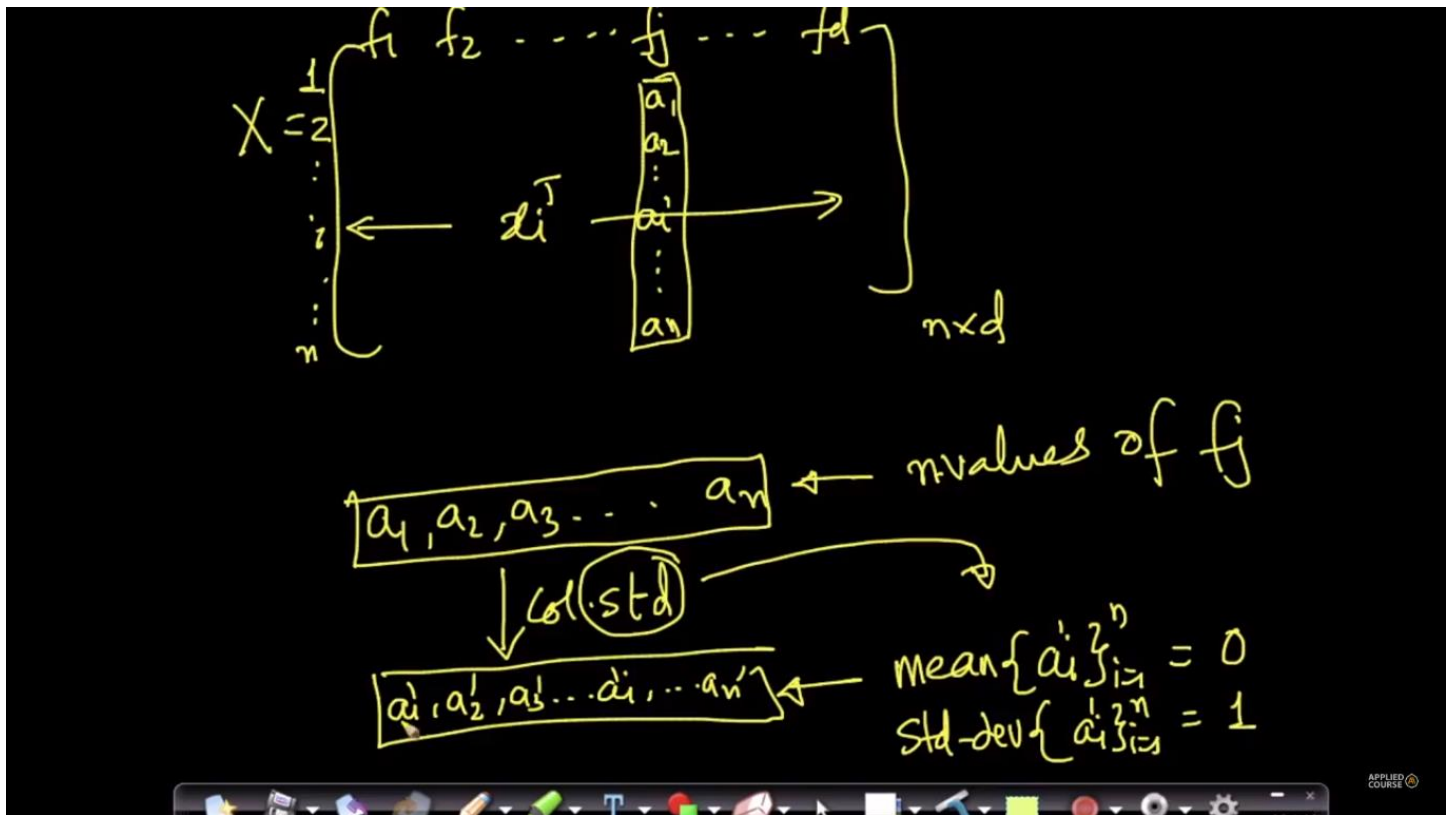 f1 f2 ..... fj ... fd
1
X = 2
a1
a2
⋮
i
xiᵀ
ai
⋮
n
an
n×d
a1, a2, a3 .... an
n-values of fj
col.std
a1', a2', a3' ... ai', ... an'
mean{ai'}ⁿi=1 = 0
std-dev{ai'}ⁿi=1 = 1
T
APPLIED
COURSE